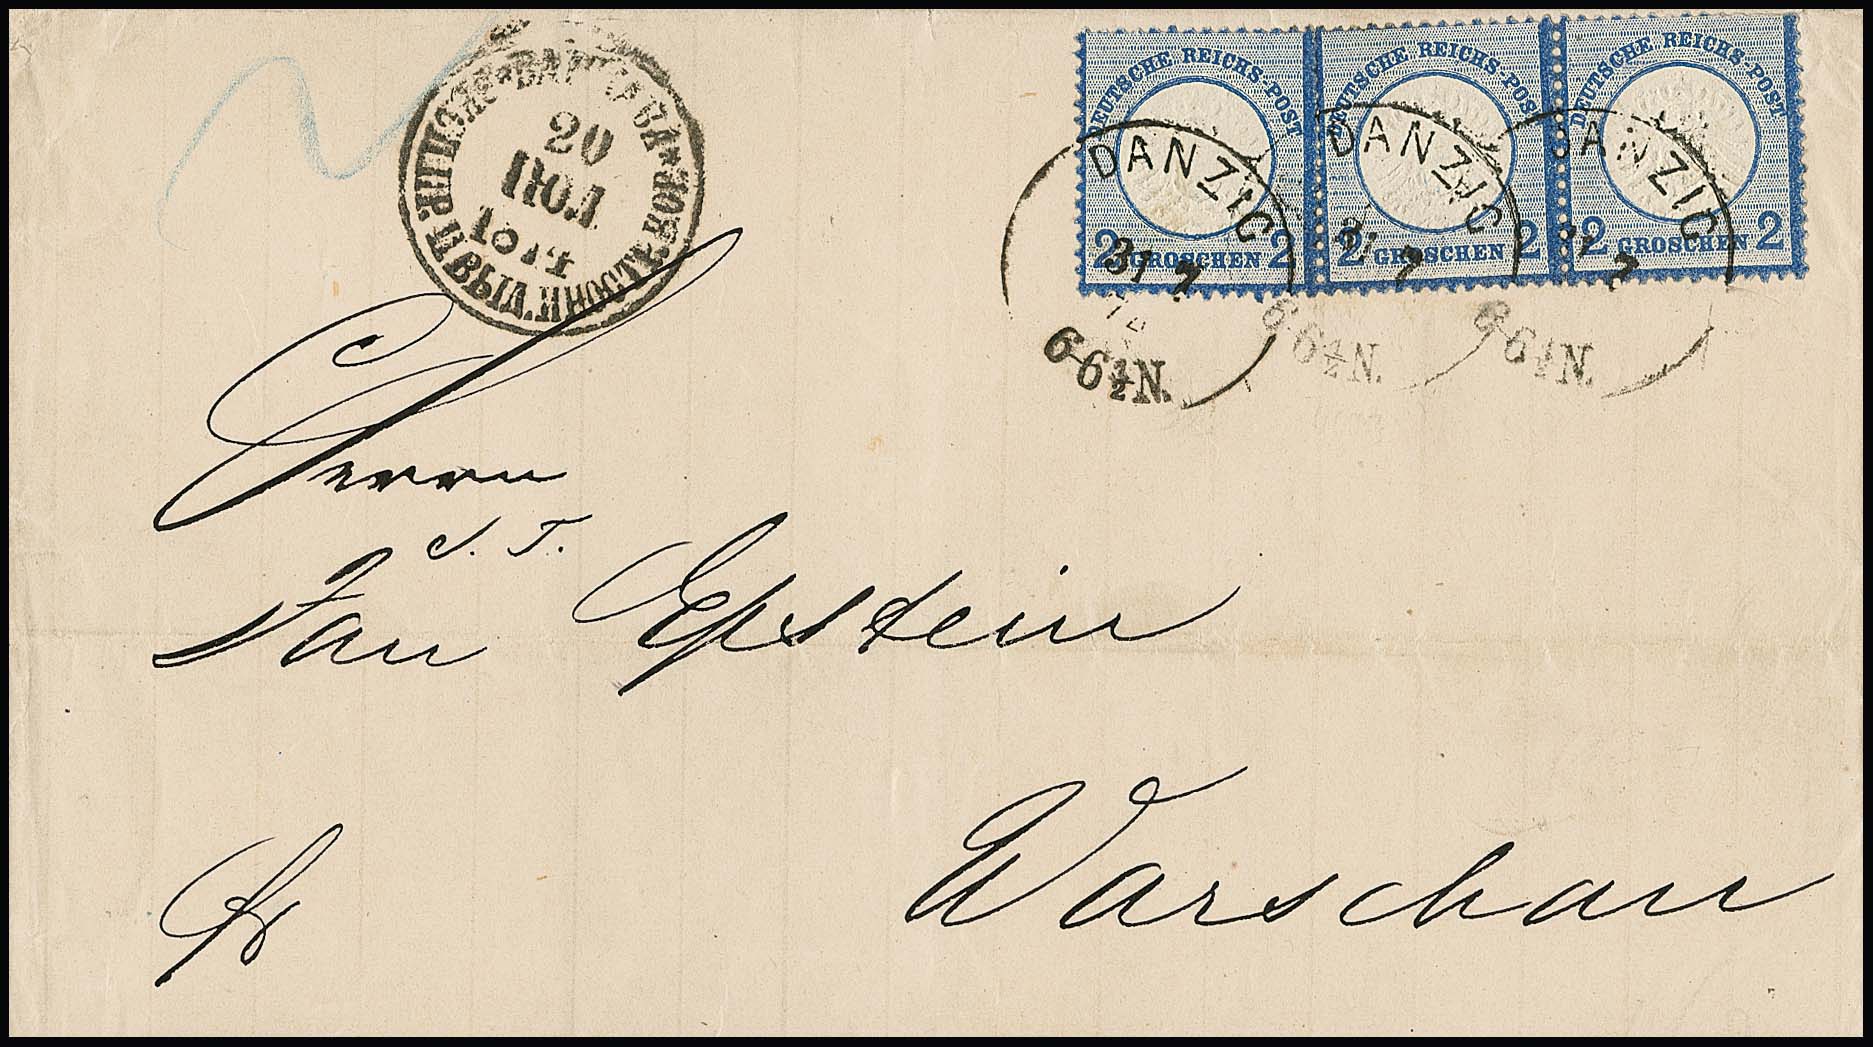 ВАРШАВА
20
ІЮЛ
1874
DEUTSCHE REICHS-POST
2 GROSCHEN 2
DEUTSCHE REICHS-POST
2 GROSCHEN 2
DEUTSCHE REICHS-POST
2 GROSCHEN 2
DANZIG
31 7
74
6-6½N.
DANZIG
31 7
6-6½N.
DANZIG
31 7
6-6½N.
Herrn
J. T.
Jan Epstein
Warschau
fr